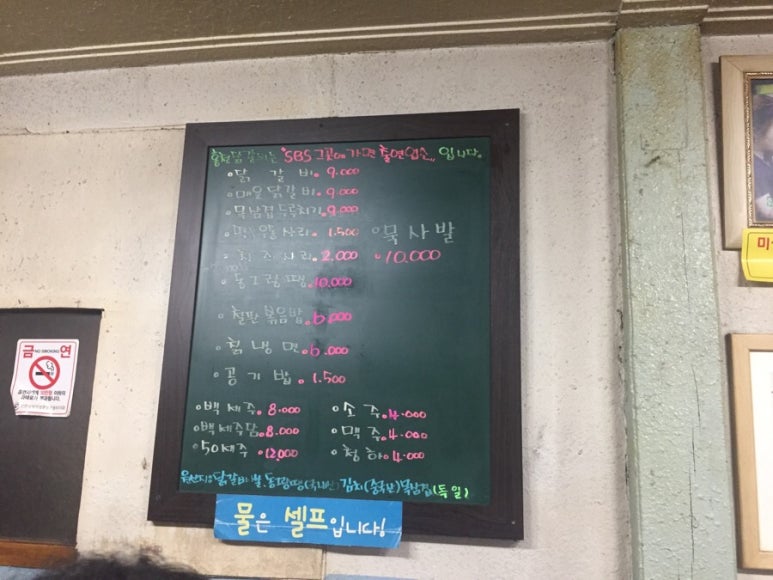 닭갈비는 "SBS 그곳에 가면 출연업소" 입니다.
닭 갈 비 9.000
매운닭갈비 9.000
목삼겹두루치기 9.000
사리 1.500
치즈사리 2.000
동그랑땡 10.000
철판볶음밥 6.000
칡냉면 6.000
공기밥 1.500
묵사발
10.000
백세주 8.000
백세주담 8.000
50세주 12.000
소주 4.000
맥주 4.000
청하 4.000
원산지: 닭갈비 쌀.동그랑땡(국내산) 김치(중국산) 목삼겹(독일)
물은 셀프입니다!
금연
NO SMOKING
미